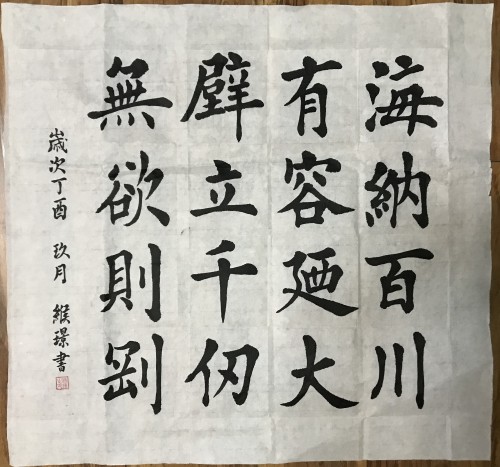 海納百川
有容廼大
壁立千仞
無欲則剛
歲次丁酉 玖月 緱璟書